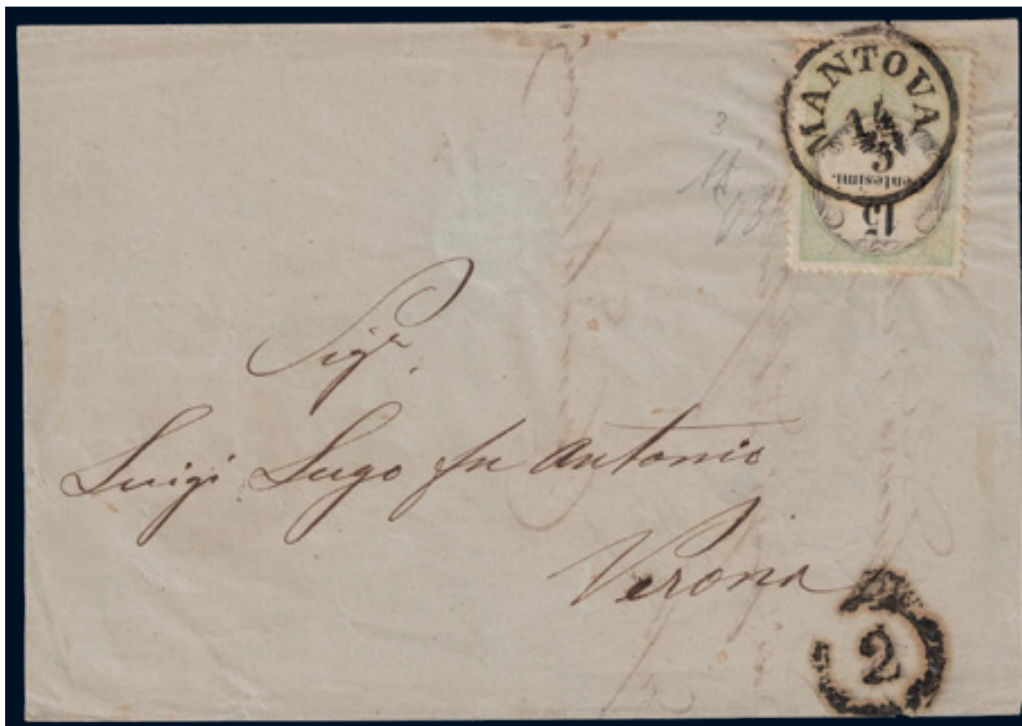 MANTOVA
14
5
Centesimi.
15
3
Sigr.
Luigi Lugo fu Antonio
Verona
2